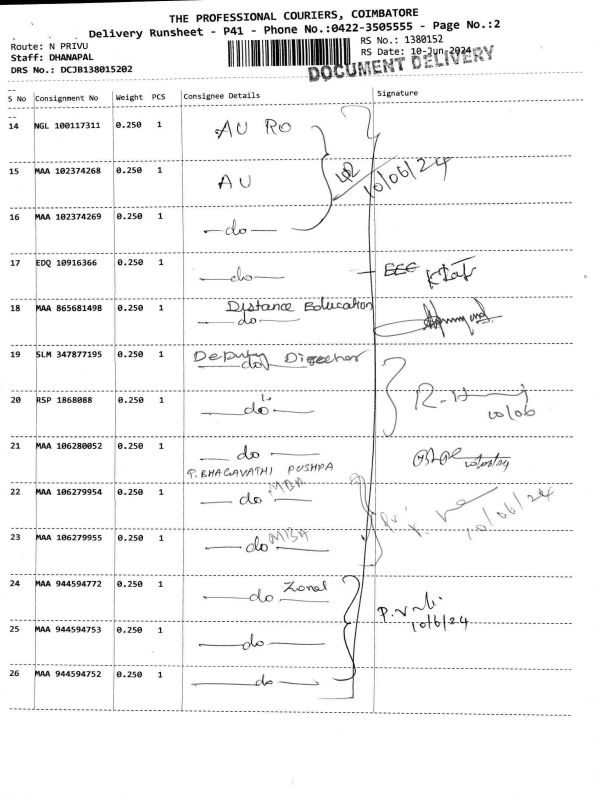 THE PROFESSIONAL COURIERS, COIMBATORE
Delivery Runsheet - P41 - Phone No.:0422-3505555 - Page No.:2
Route: N PRIVU
RS No.: 1380152
Staff: DHANAPAL
RS Date: 10-Jun-2024
DRS No.: DCJB138015202
DOCUMENT DELIVERY
S No Consignment No Weight PCS Consignee Details Signature
14 NGL 100117311 0.250 1 AU RO
15 MAA 102374268 0.250 1 AU 10/06/24
16 MAA 102374269 0.250 1 do
17 EDQ 10916366 0.250 1 do EEE
18 MAA 865681498 0.250 1 Distance Education
do
19 SLM 347877195 0.250 1 Deputy Director
do
20 RSP 1868088 0.250 1 do 10/06
21 MAA 106280052 0.250 1 do
T. BHAGAVATHI PUSHPA
22 MAA 106279954 0.250 1 do MBA 10/06/24
23 MAA 106279955 0.250 1 do MBA
24 MAA 944594772 0.250 1 do Zonal
25 MAA 944594753 0.250 1 do 10/6/24
26 MAA 944594752 0.250 1 do